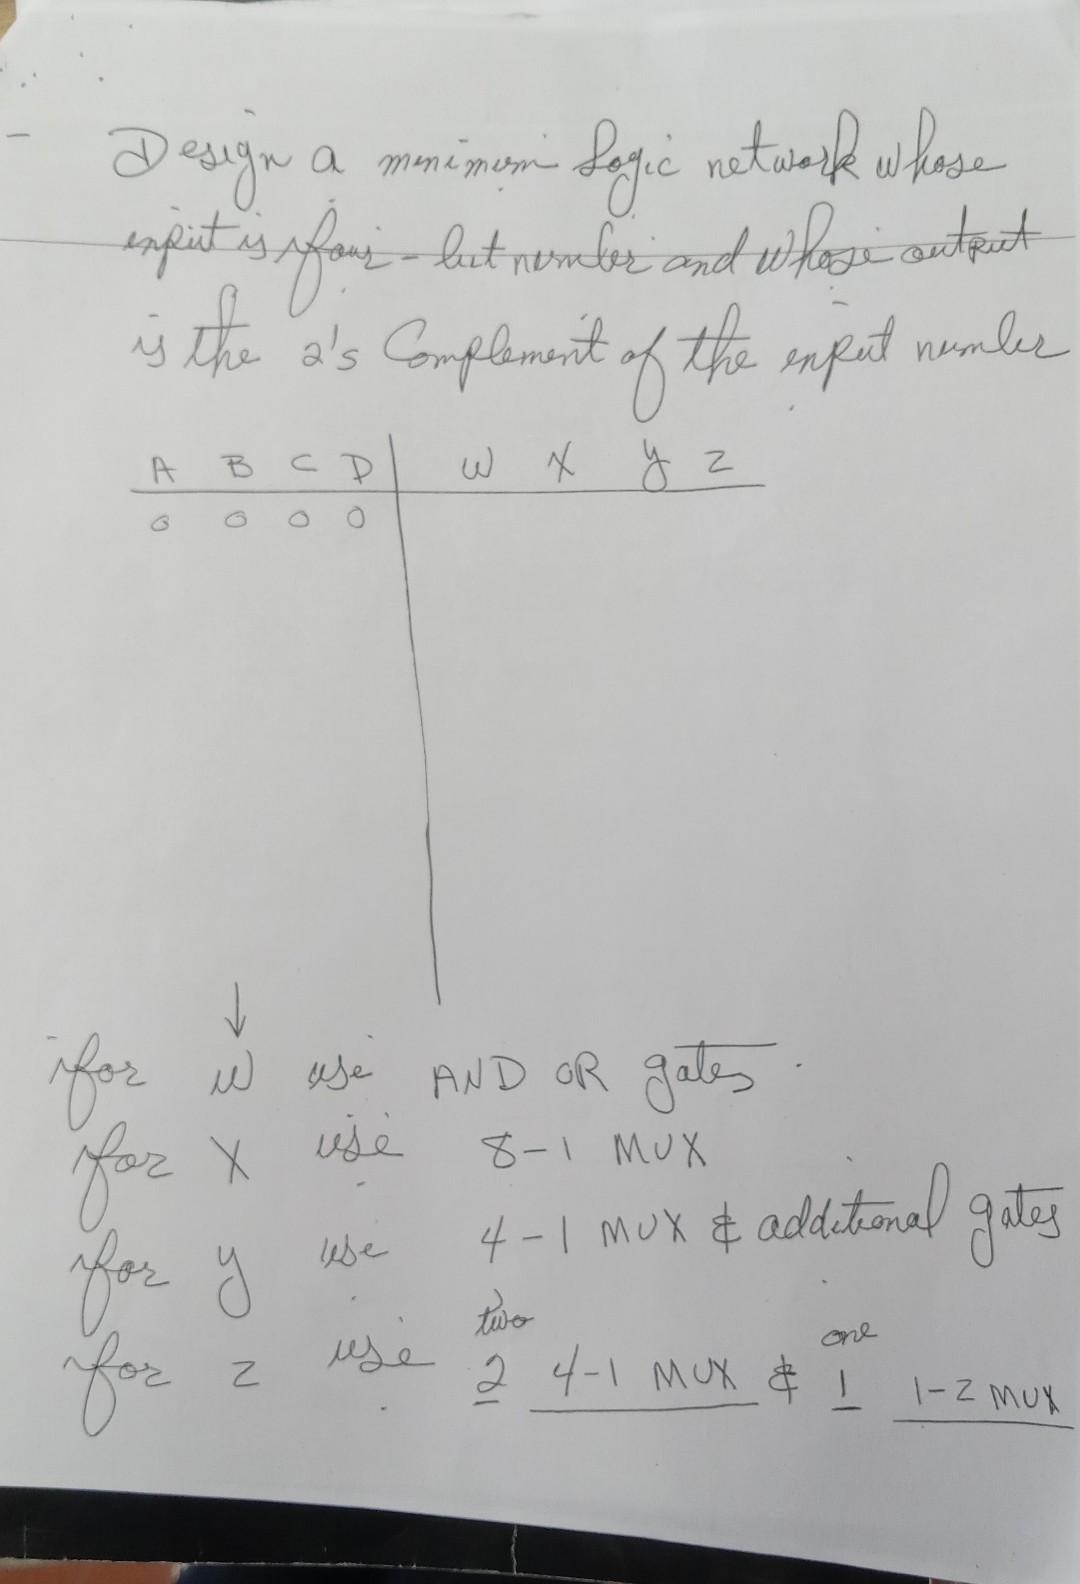 Design a minimum logic network whose
input is four-bit number and whose output
is the 2's Complement of the input number
A B C D W X Y Z
0 0 0 0
for W use AND OR gates.
for X use 8-1 MUX
for Y use 4-1 MUX & additional gates
two one
for Z use 2 4-1 MUX & 1 1-2 MUX